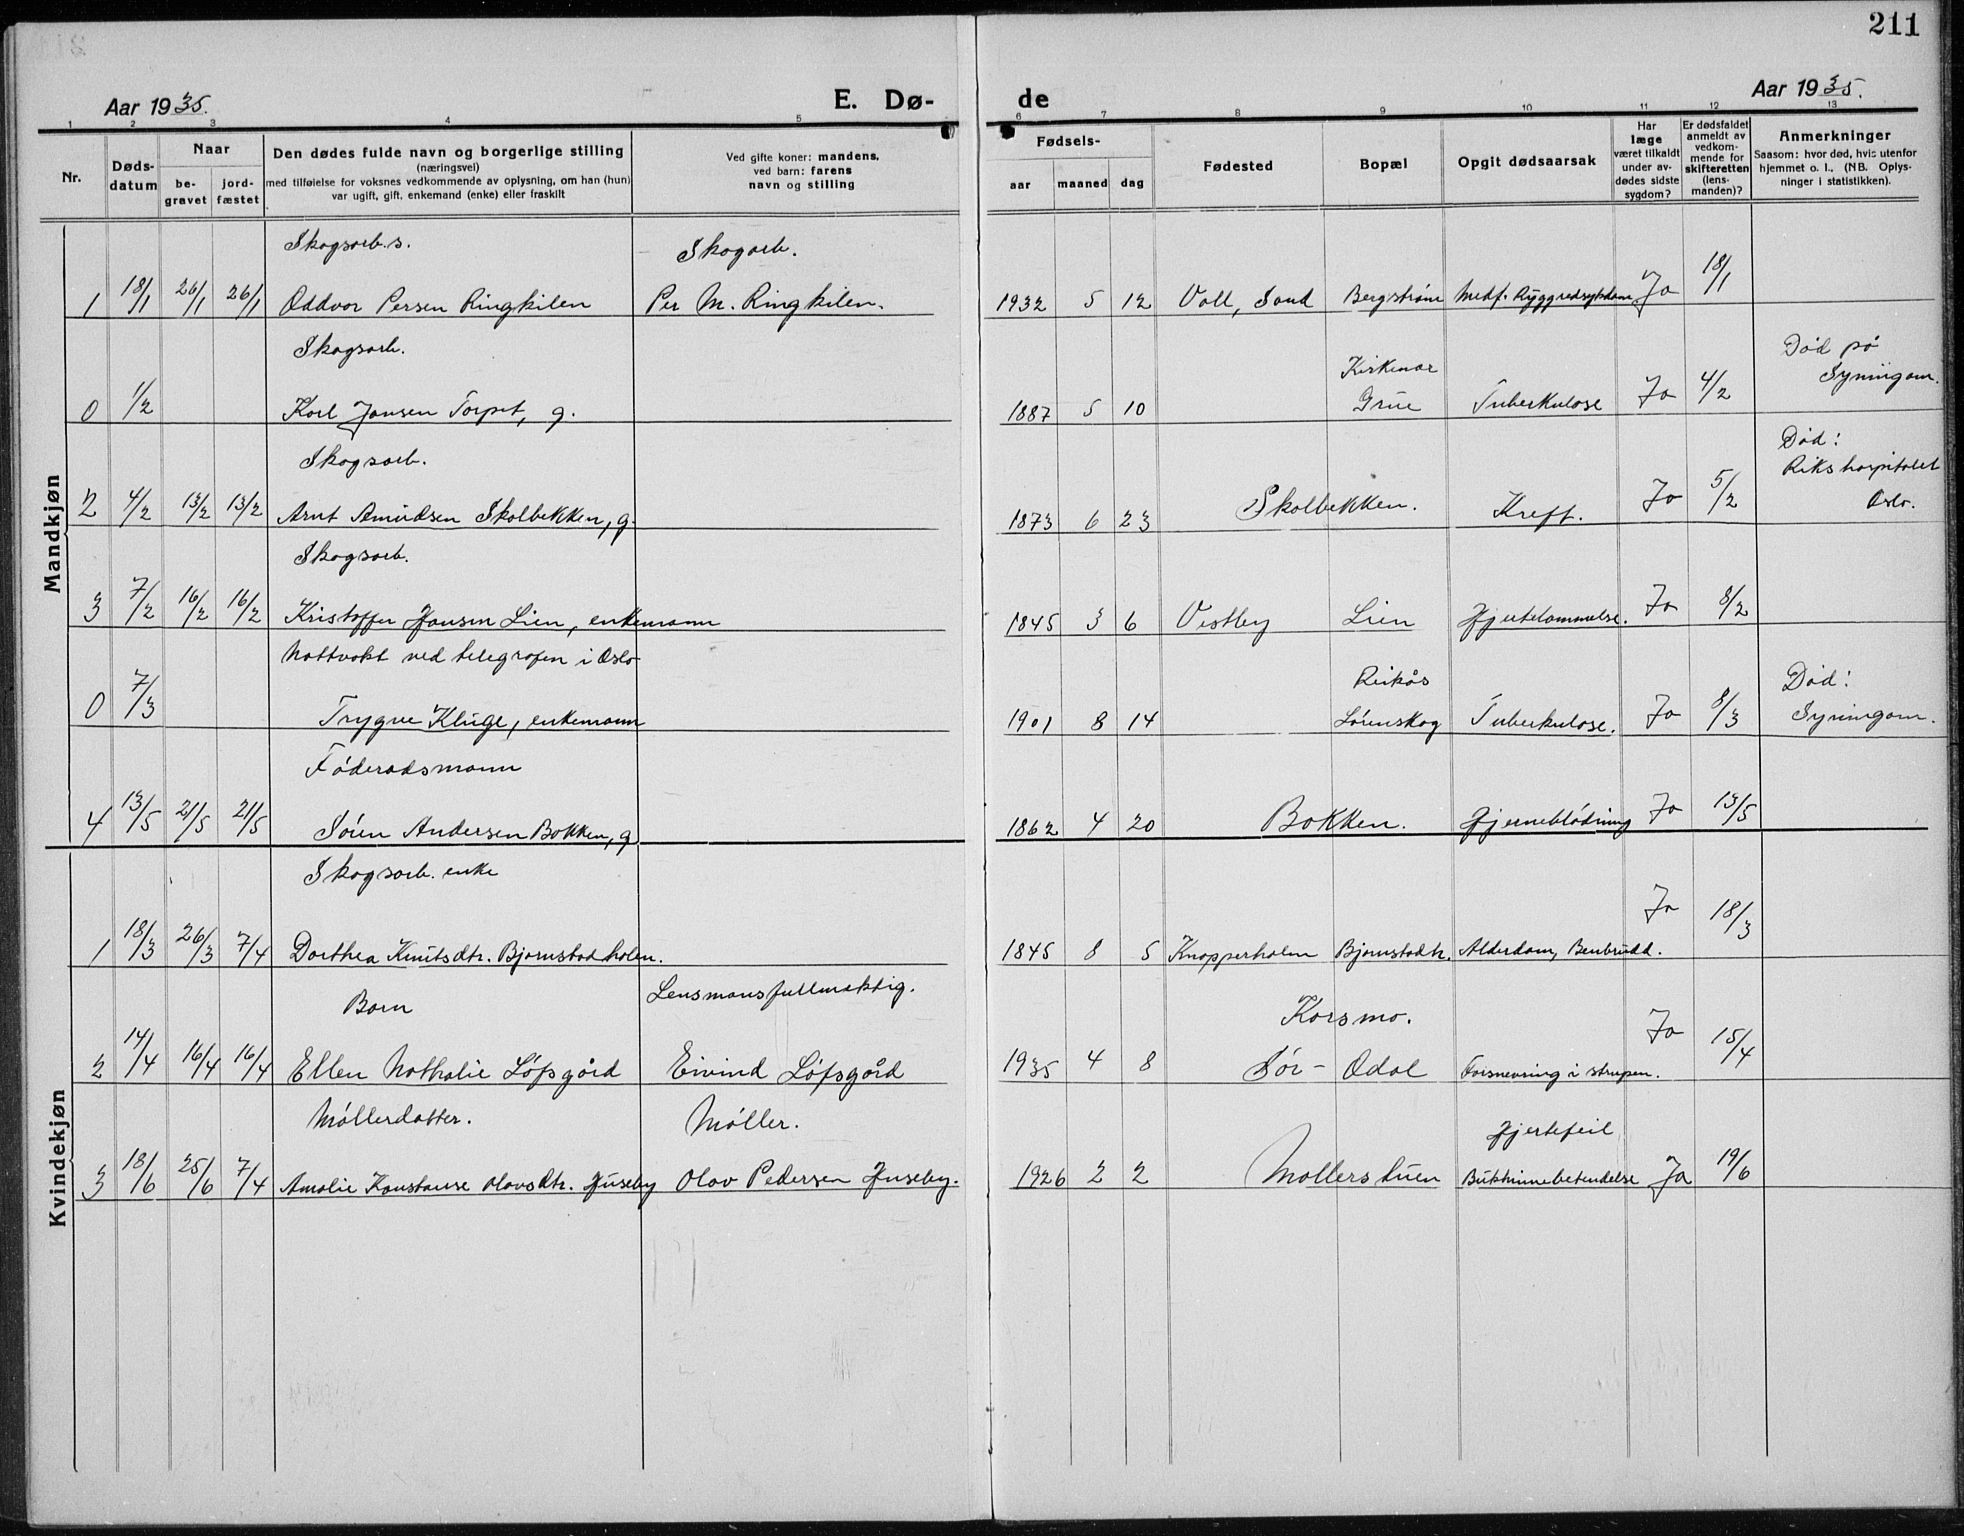 211
Aar 1935.
E. Dø-
de
Aar 1935.
1 2 3 4 5 6 7 8 9 10 11 12 13
Nr.
Døds-
datum
Naar
be-
gravet
jord-
fæstet
Den dødes fulde navn og borgerlige stilling
(næringsvei)
med tilføielse for voksnes vedkommende av oplysning, om han (hun)
var ugift, gift, enkemand (enke) eller fraskilt
Ved gifte koner: mandens,
ved barn: farens
navn og stilling
Fødsels-
aar
maaned
dag
Fødested
Bopæl
Opgit dødsaarsak
Har
læge
været tilkaldt
under av-
dødes sidste
sygdom?
Er dødsfaldet
anmeldt av
vedkom-
mende for
skifteretten
(lens-
manden)?
Anmerkninger
Saasom: hvor død, hvis utenfor
hjemmet o. l., (NB. Oplys-
ninger i statistikken).
Mandkjøn
Skogsarb.s. Skogarb.
1 18/1 26/1 26/1 Oddvar Persen Ringkilen Per M. Ringkilen. 1932 5 12 Voll, Sand Bergstrøm Medf. Ryggredsykdom Ja 18/1
Skogsarb. Kirkenær Død på
0 1/2 Karl Jansen Torpet, g. 1887 5 10 Grue Tuberkulose Ja 4/2 Syningom.
Skogsarb. Død:
Rikshospitalet
2 4/2 13/2 13/2 Arnt Amundsen Skolbekken, g. 1873 6 23 Skolbekken. Kreft. Ja 5/2 Oslo.
Skogsarb.
3 7/2 16/2 16/2 Kristoffer Hansen Lien, enkemann 1845 3 6 Vestby Lien Hjertelammelse. Ja 8/2
Nattvakt ved telegrafen i Oslo Død:
0 7/3 Trygve Kluge, enkemann 1901 8 14 Lørenskog Tuberkulose. Ja 8/3 Syningom.
Føderadsmann
4 13/5 21/5 21/5 Søren Andersen Bakken, g 1862 4 20 Bakken. Hjerneblødning Ja 13/5
Kvindekjøn
Skogsarb. enke
1 18/3 26/3 7/4 Dorthea Knutsdtr. Bjørnstadholen. 1845 8 5 Knapperholen Bjørnstadh. Alderdom, Benbrudd. Ja 18/3
Barn Lensmansfullmektig. Korsmo.
2 14/4 16/4 16/4 Ellen Nathalie Løfsgård Eivind Løfsgård 1935 4 8 Sør- Odal Forsnevring i strupen. Ja 15/4
Møllerdatter. Møller. Hjertefeil
3 18/6 25/6 7/4 Amalie Konstanse Olavsdtr. Huseby Olav Pedersen Huseby. 1926 2 2 Møllerstuen Bukhinnebetendelse Ja 19/6